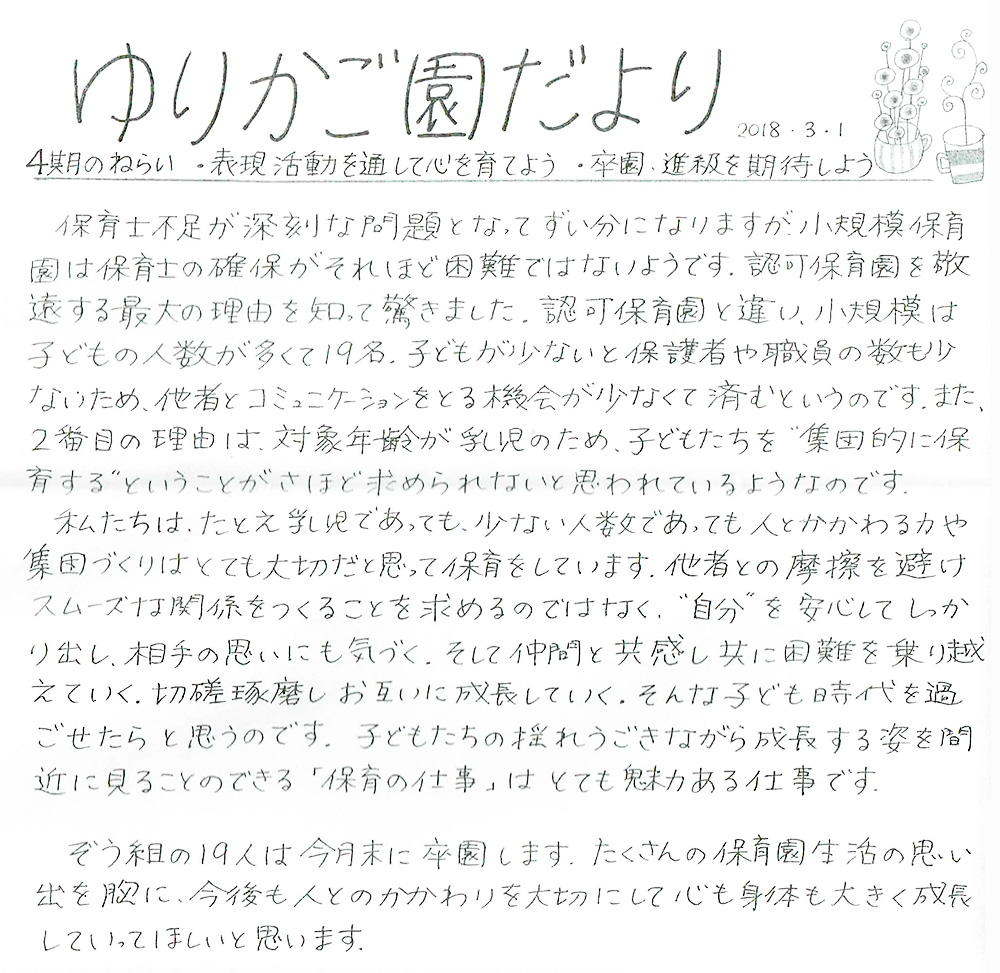 ゆりかご園だより
2018・3・1
4期のねらい ・表現活動を通して心を育てよう ・卒園、進級を期待しよう
保育士不足が深刻な問題となってずい分になりますが、小規模保育
園は保育士の確保がそれほど困難ではないようです。認可保育園を敬
遠する最大の理由を知って驚きました。認可保育園と違い、小規模は
子どもの人数が多くて19名。子どもが少ないと保護者や職員の数も少
ないため、他者とコミュニケーションをとる機会が少なくて済むというのです。また、
2番目の理由は、対象年齢が乳児のため、子どもたちを“集団的に保
育する”ということがさほど求められないと思われているようなのです。
私たちは、たとえ乳児であっても、少ない人数であっても人とかかわる力や
集団づくりはとても大切だと思って保育をしています。他者との摩擦を避け
スムーズな関係をつくることを求めるのではなく、“自分”を安心してしっか
り出し、相手の思いにも気づく。そして仲間と共感し共に困難を乗り越
えていく。切磋琢磨しお互いに成長していく。そんな子ども時代を過
ごせたらと思うのです。子どもたちの揺れうごきながら成長する姿を間
近に見ることのできる「保育の仕事」はとても魅力ある仕事です。
ぞう組の19人は今月末に卒園します。たくさんの保育園生活の思い
出を胸に、今後も人とのかかわりを大切にして心も身体も大きく成長
していってほしいと思います。